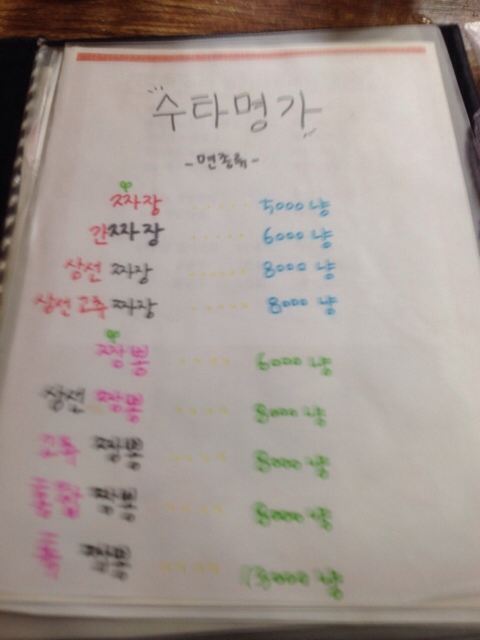 수타명가
-면종류-
짜장 5000냥
간짜장 6000냥
삼선 짜장 8000냥
삼선고추 짜장 8000냥
짬뽕 6000냥
삼선 짬뽕 8000냥
고추 짬뽕 8000냥
짬뽕 8000냥
짬뽕